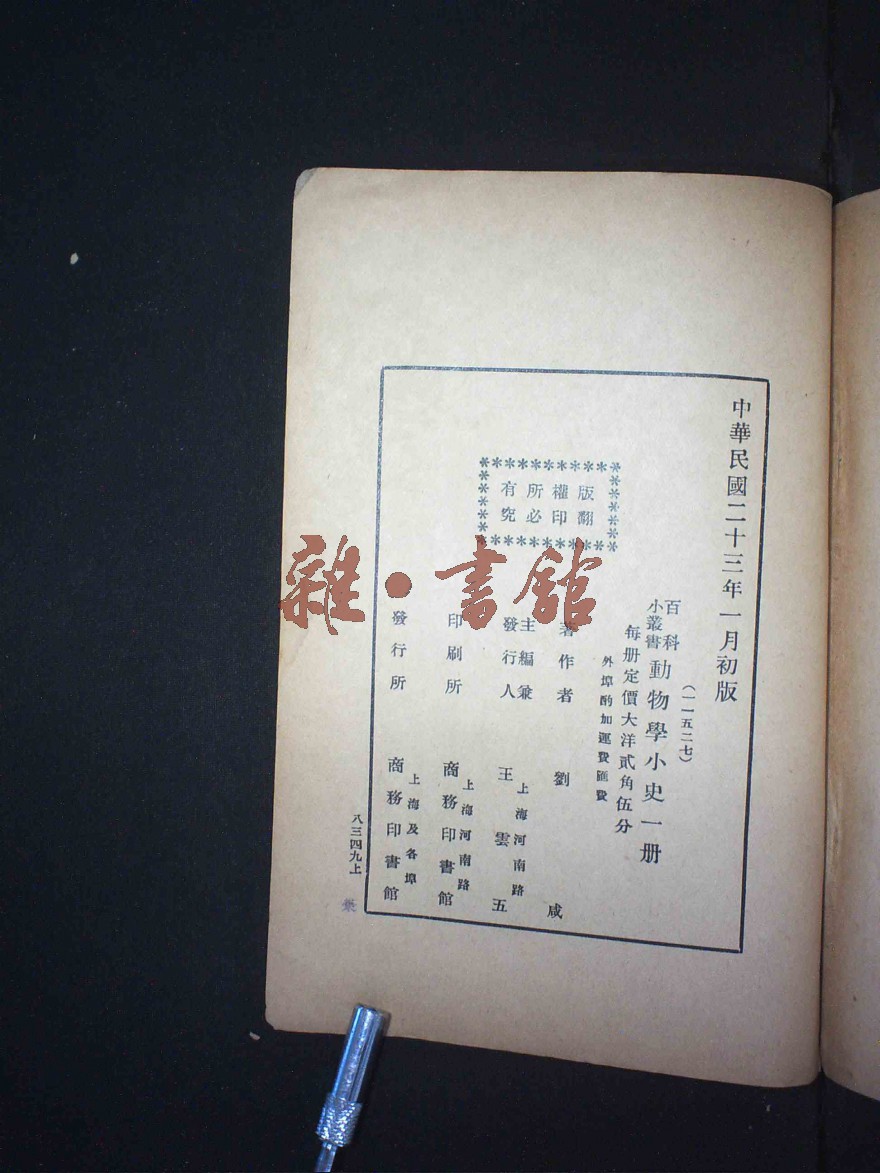 中華民國二十三年一月初版
(一一五二七)
百科
小叢書
動物學小史一册
每册定價大洋貳角伍分
外埠酌加運費匯費
版權所有
翻印必究
著作者 劉咸
主編兼
發行人
上海河南路
王雲五
印刷所
上海河南路
商務印書館
發行所
上海及各埠
商務印書館
八三四九上
雜·書館